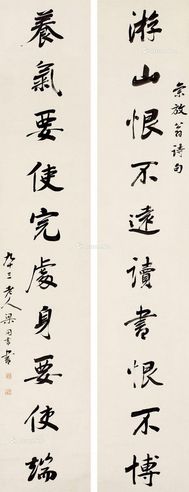 放翁詩句
游山恨不遠讀書恨不博
養氣要使完處身要使端
九十三老人梁同書